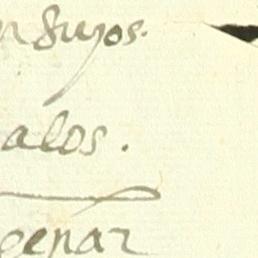 n suyos.
alos.
genar